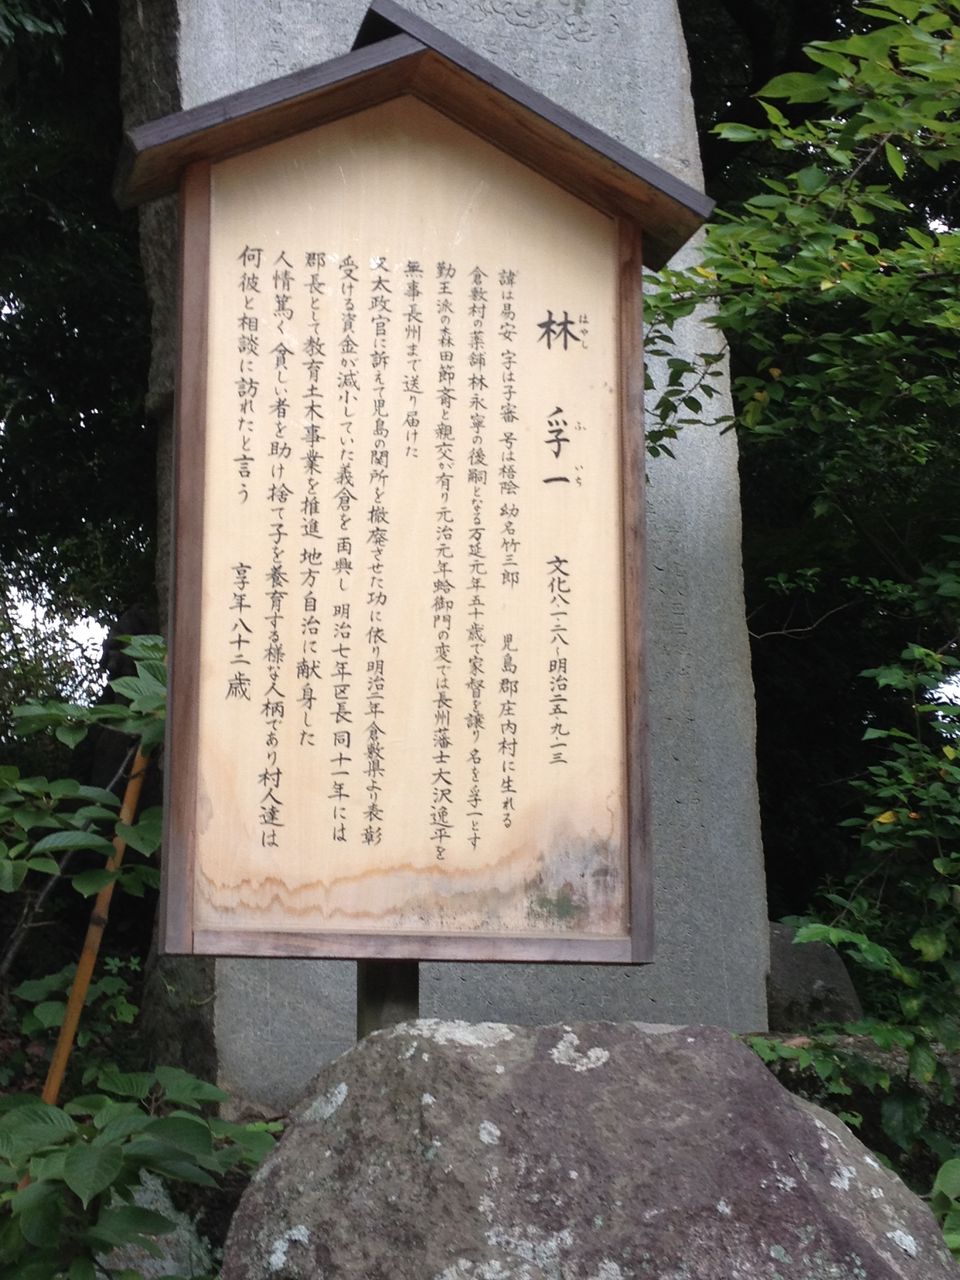 林孚一 文化八・一・二八~明治二五・九・一三
はやし ふいち
諱は易安 字は子審 号は梧陰 幼名竹三郎 児島郡庄内村に生れる
倉敷村の薬舗林永寧の後嗣となる万延元年五十歳で家督を譲り 名を孚一とす
勤王派の森田節斎と親交が有り元治元年蛤御門の変では長州藩士大沢逸平を
無事長州まで送り届けた
又太政官に訴えて児島の関所を撤廃させた功に依り明治二年倉敷県より表彰
受ける資金が減小していた義倉を再興し 明治七年区長同十一年には
郡長として教育土木事業を推進 地方自治に献身した
人情篤く貧しい者を助け捨て子を養育する様な人柄であり村人達は
何彼と相談に訪れたと言う 享年八十二歳